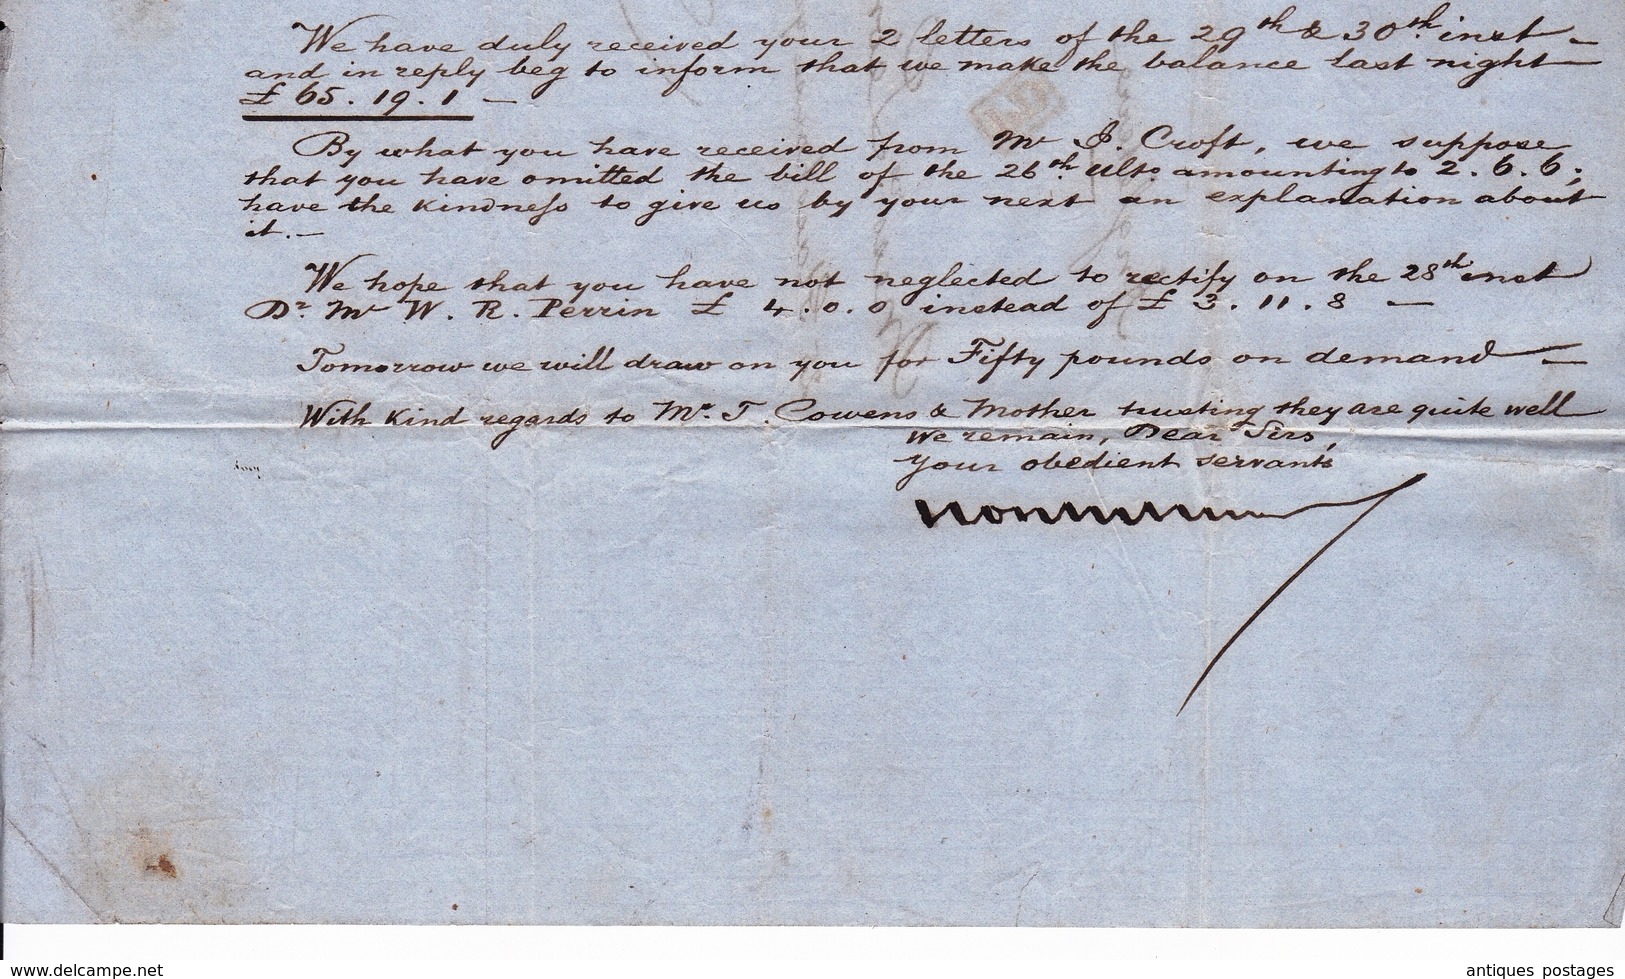 We have duly received your 2 letters of the 29th & 30th. inst –
and in reply beg to inform that we make the balance last night
£ 65.19.1 –
By what you have received from Mr J. Croft, we suppose
that you have omitted the bill of the 26th. ulto. amounting to 2.6.6;
have the kindness to give us by your next an explanation about
it. –
We hope that you have not neglected to rectify on the 28th inst
Dr. Mr W. R. Perrin £ 4.0.0 instead of £ 3.11.8 –
Tomorrow we will draw on you for Fifty pounds on demand –
With kind regards to Mr. T. Cowens & Mother trusting they are quite well
We remain, Dear Sirs,
Your obedient servants
www.delcampe.net
antiques postages